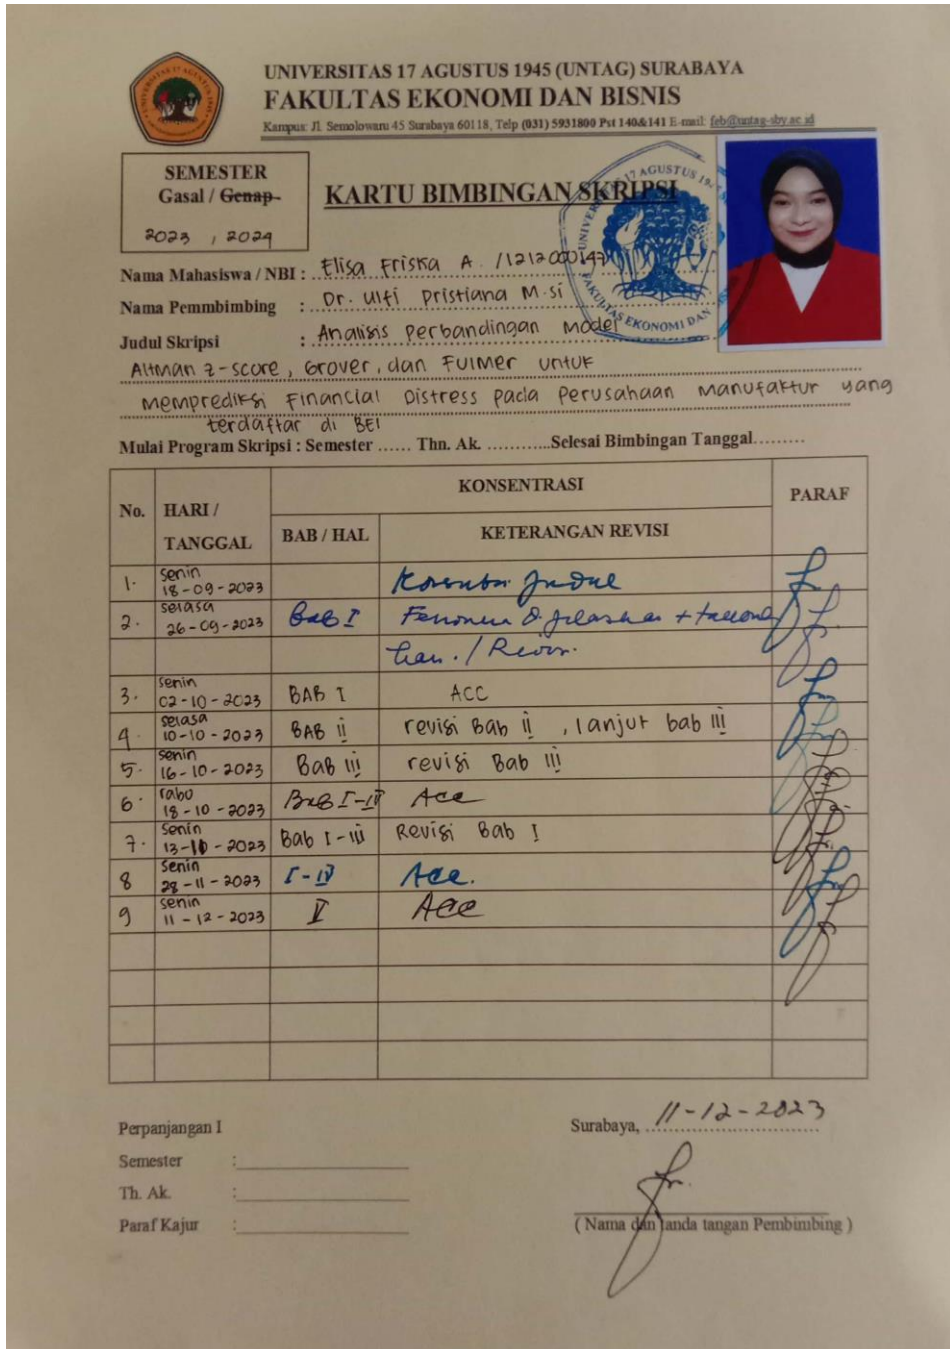 UNIVERSITAS 17 AGUSTUS 1945 (UNTAG) SURABAYA
FAKULTAS EKONOMI DAN BISNIS
Kampus: Jl. Semolowaru 45 Surabaya 60118, Telp (031) 5931800 Pst 140&141 E-mail: feb@untag-sby.ac.id
SEMESTER
Gasal / Genap
2023 , 2024
KARTU BIMBINGAN SKRIPSI
Nama Mahasiswa / NBI : Elisa Friska A. /1212000147
Nama Pemmbimbing : Dr. Ulfi Pristiana M.si
Judul Skripsi : Analisis Perbandingan Model
Altman Z-score, Grover, dan Fulmer untuk
memprediksi Financial Distress pada Perusahaan Manufaktur yang
terdaftar di BEI
Mulai Program Skripsi : Semester ...... Thn. Ak. ............Selesai Bimbingan Tanggal.........
No. HARI / TANGGAL KONSENTRASI PARAF
BAB / HAL KETERANGAN REVISI
1. senin 18-09-2023 Judul
2. selasa 26-09-2023 Bab I Fenomena di jelaskan +
/ Revisi.
3. senin 02-10-2023 BAB I ACC
4. selasa 10-10-2023 BAB ii revisi Bab ii , lanjut bab iii
5. senin 16-10-2023 BaB iii revisi Bab iii
6. rabo 18-10-2023 Bab I-III Acc
7. senin 13-10-2023 Bab I-iii Revisi Bab I
8 senin 28-11-2023 I-IV Acc.
9 senin 11-12-2023 V Acc
Perpanjangan I
Semester :
Th. Ak. :
Paraf Kajur :
Surabaya, 11-12-2023
( Nama dan tanda tangan Pembimbing )